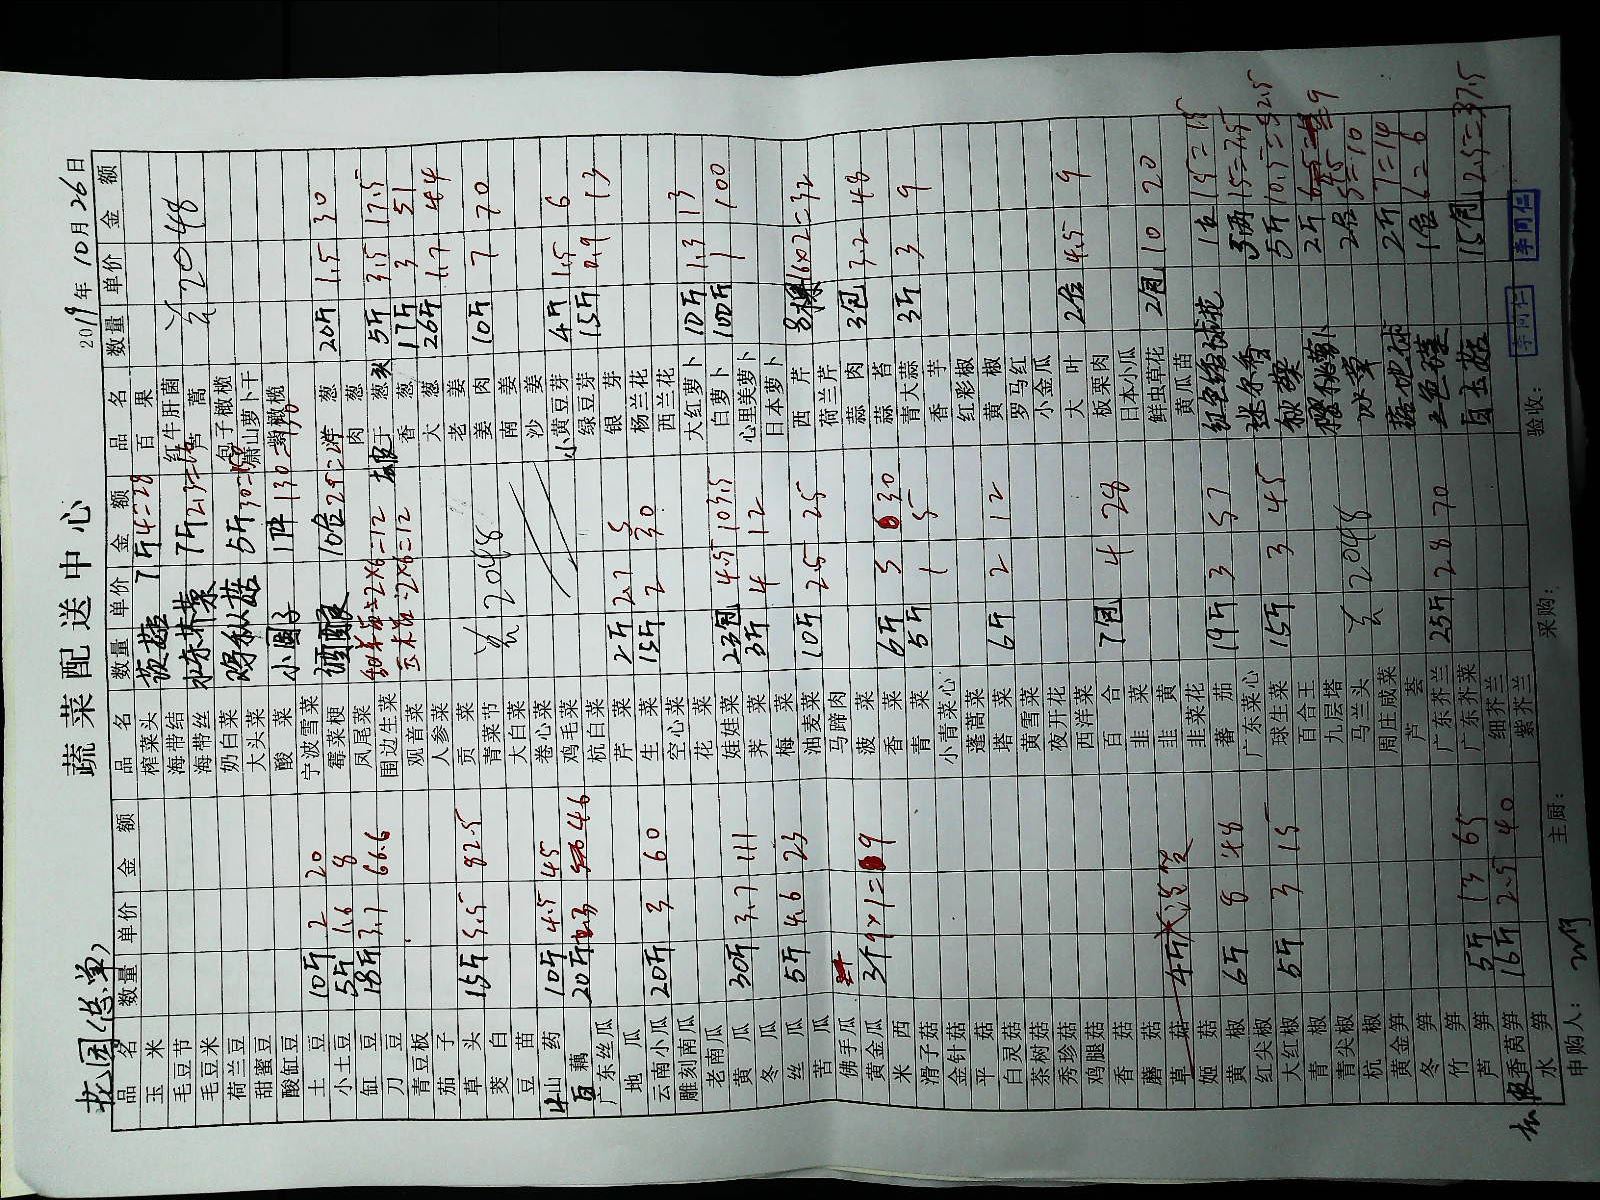 花园(总单)
蔬菜配送中心
2019年10月26日
品名 数量 单价 金额 品名 数量 单价 金额 品名 数量 单价 金额
玉米 榨菜头 茨菇 7斤4=28 百果
毛豆节 海带结 红牛肝菌
毛豆米 海带丝 7斤2.3=16 芦蒿 共2048
荷兰豆 奶白菜 5斤 包子橄榄
甜蜜豆 大头菜 萧山萝卜干
酸缸豆 酸菜 小圆子 1件130=130 紫橄榄
土豆 10斤 2 20 宁波雪菜 洋葱 20斤 1.5 30
小土豆 5斤 1.6 8 霉菜梗 肉葱
缸豆 18斤 3.7 66.6 凤尾菜 2×6=12 干葱 5斤 3.5 17.5
刀豆 围边生菜 2×6=12 香葱 17斤 3 51
青豆板 观音菜 大葱 26斤 1.7 44
茄子 人参菜 老姜
草头 15斤 5.5 82.5 贡菜 姜肉 10斤 7 70
茭白 青菜节 共2048 南姜
豆苗 大白菜 沙姜
山药 10斤 4.5 45 卷心菜 小黄豆芽 4斤 1.5 6
白藕 20斤 2.3 46 鸡毛菜 绿豆芽 15斤 0.9 13
广东丝瓜 杭白菜 银芽
地瓜 芹菜 2斤 2.7 5 杨兰花
云南小瓜 20斤 3 60 生菜 15斤 2 30 西兰花
雕刻南瓜 空心菜 大红萝卜 10斤 1.3 13
老南瓜 花菜 白萝卜 100斤 1 100
黄瓜 30斤 3.7 111 娃娃菜 23包 4.5 103.5 心里美萝卜
冬瓜 荠菜 3斤 4 12 日本萝卜
丝瓜 5斤 4.6 23 梅菜 西芹 8棵 16×2=32
苦瓜 油麦菜 10斤 2.5 25 荷兰芹
佛手瓜 马蹄肉 蒜肉 3包 3.2 48
黄金瓜 3个 9×1=9 菠菜 蒜苔
米西 香菜 6斤 5 30 青大蒜 3斤 3 9
滑子菇 青菜 5斤 1 5 香芋
金针菇 小青菜心 红彩椒
平菇 蓬蒿菜 黄椒
白灵菇 塔菜 6斤 2 12 罗马红
茶树菇 黄雪菜 小金瓜
秀珍菇 夜开花 大叶 2盒 4.5 9
鸡腿菇 西洋菜 板栗肉
香菇 百合 7包 4 28 日本小瓜
蘑菇 韭菜 鲜虫草花 2包 10 20
草菇 4斤 没发 韭黄 黄瓜苗
姬菇 韭菜花 1盒 15=15
黄椒 6斤 8 48 蕃茄 19斤 3 57 迷尔香 5两 15=7.5
红尖椒 广东菜心 秋葵 5斤 10.5=52.5
大红椒 5斤 3 15 球生菜 15斤 3 45 樱桃萝卜 2斤 4.5 9
青椒 百合王 冰草 2盒 5=10
青尖椒 九层塔 2斤 7=14
杭椒 马兰头 共2048 1盒 6=6
黄金笋 周庄咸菜 白玉菇 15包 2.5=37.5
冬笋 芦荟
竹笋 广东芥兰 25斤 2.8 70
芦笋 5斤 13 65 广东芥菜
香莴笋 16斤 2.5 40 细芥兰
水笋 紫芥兰
申购人： 主厨： 采购： 验收： 李同仁 李同仁